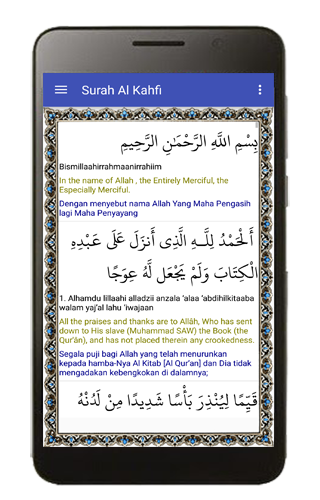 Surah Al Kahfi
بِسْمِ اللَّهِ الرَّحْمَٰنِ الرَّحِيمِ
Bismillaahirrahmaanirrahiim
In the name of Allah , the Entirely Merciful, the
Especially Merciful.
Dengan menyebut nama Allah Yang Maha Pengasih
lagi Maha Penyayang
أَلْحَمْدُ لِلَّـهِ الَّذِى أَنزَلَ عَلَىٰ عَبْدِهِ
الْكِتَابَ وَلَمْ يَجْعَل لَّهُ عِوَجًا
1. Alhamdu lillaahi alladzii anzala 'alaa 'abdihilkitaaba
walam yaj'al lahu 'iwajaan
All the praises and thanks are to Allâh, Who has sent
down to His slave (Muhammad SAW) the Book (the
Qur'ân), and has not placed therein any crookedness.
Segala puji bagi Allah yang telah menurunkan
kepada hamba-Nya Al Kitab [Al Qur'an] dan Dia tidak
mengadakan kebengkokan di dalamnya;
قَيِّمًا لِيُنْذِرَ بَأْسًا شَدِيدًا مِنْ لَدُنْهُ